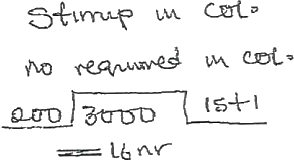 Stirrup in col.
no required in col.
200 3000 15+1
= 16 nr